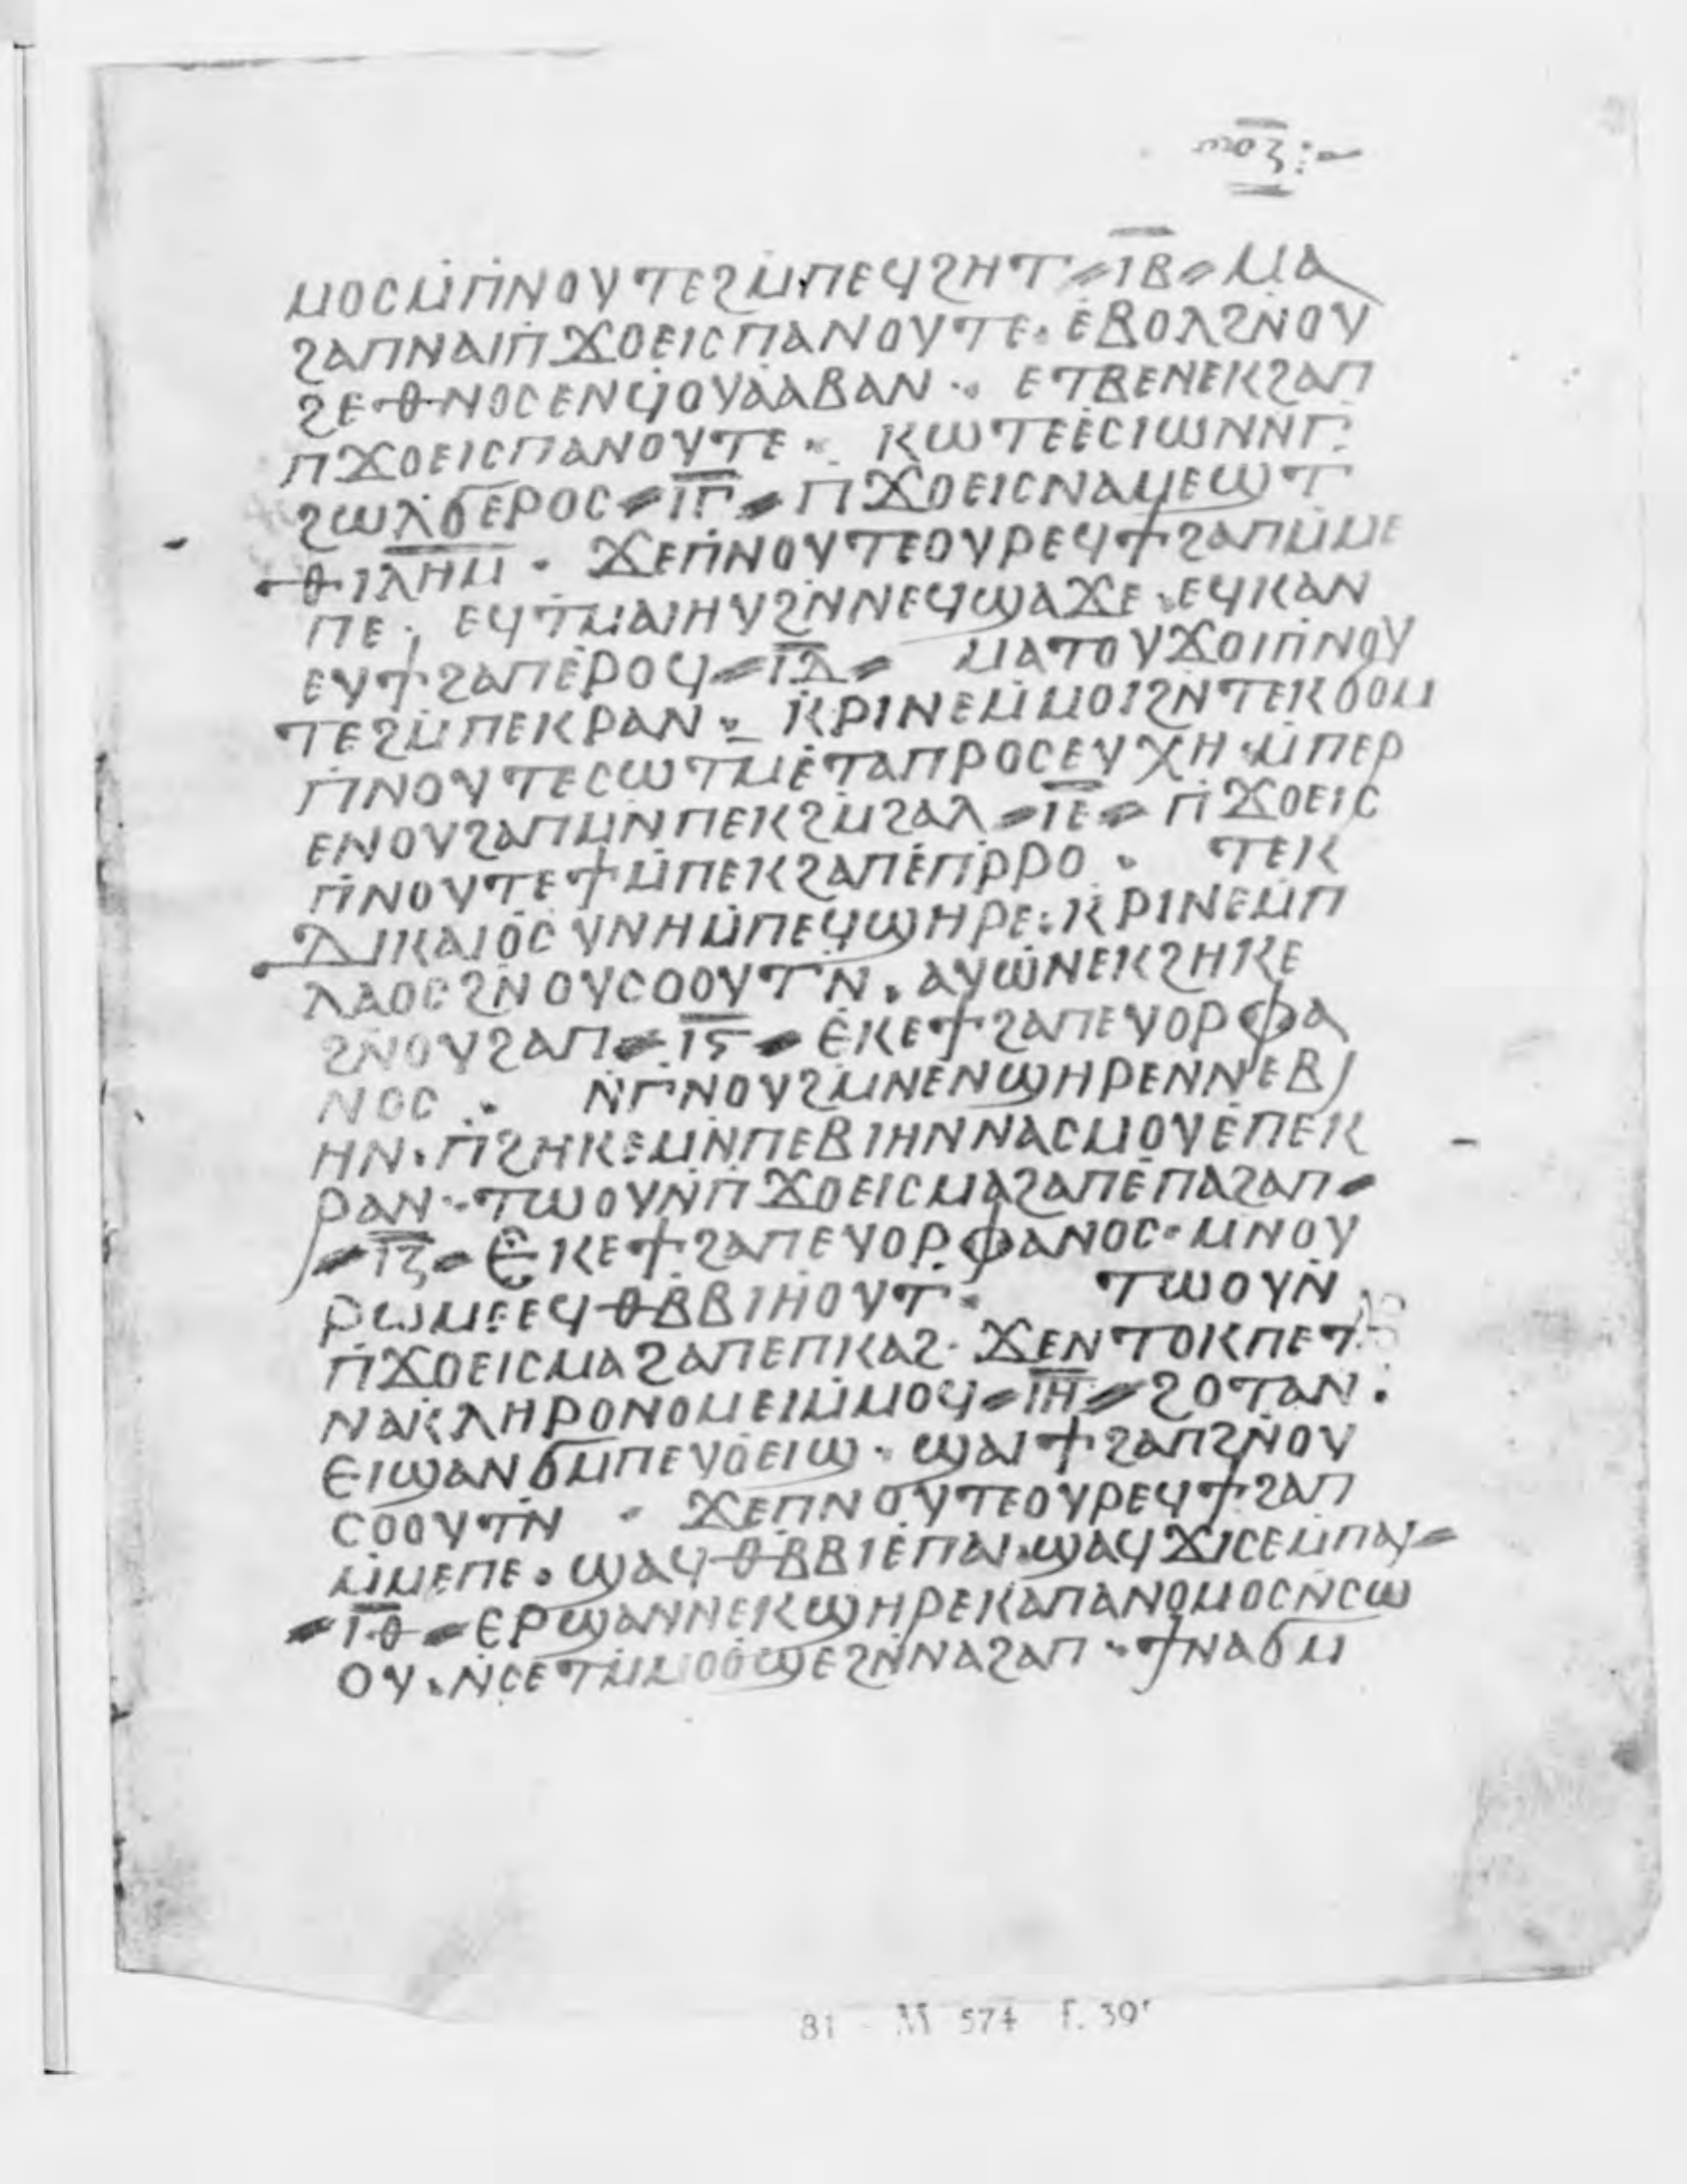 ⲟⲍ
ⲙⲟⲥⲙ̇ⲡ̇ⲛⲟⲩⲧⲉϩⲙ̇ⲡⲉϥϩⲏⲧ ⲓ̅ⲃ̅ ⲙⲁ
ϩⲁⲡⲛⲁⲓⲡ̇ϫⲟⲉⲓⲥⲡⲁⲛⲟⲩⲧⲉ· ⲉ̇ⲃⲟⲗϩⲛ̇ⲟⲩ
ϩⲉⲑⲛⲟⲥⲉⲛϥⲟⲩⲁ̇ⲁⲃⲁⲛ · ⲉⲧⲃⲉⲛⲉⲕϩⲁⲡ
ⲡ̇ϫⲟⲉⲓⲥⲡⲁⲛⲟⲩⲧⲉ · ⲕⲱⲧⲉⲉ̇ⲥⲓⲱⲛⲛ̇ⲅ̇
ϩⲱⲗϭⲉ̇ⲣⲟⲥ ⲓ̅ⲅ̅ ⲡ̇ϫⲟⲉⲓⲥⲛⲁⲙⲉϣⲧ
ⲑⲓⲗⲏⲙ · ϫⲉⲡ̇ⲛⲟⲩⲧⲉⲟⲩⲣⲉϥϯϩⲁⲡⲙ̇ⲙⲉ
ⲡⲉ · ⲉϥⲧⲙ̇ⲁⲓⲏⲩϩⲛ̇ⲛⲉϥϣⲁϫⲉ · ⲉϥⲕⲁⲛ
ⲉⲩϯϩⲁⲡⲉ̇ⲣⲟϥ ⲓ̅ⲇ̅ ⲙⲁⲧⲟⲩϫⲟⲓⲡ̇ⲛⲟⲩ
ⲧⲉϩⲙ̇ⲡⲉⲕⲣⲁⲛ · ⲕ̇ⲣⲓⲛⲉⲙ̇ⲙⲟⲓϩⲛ̇ⲧⲉⲕϭⲟⲙ
ⲡ̇ⲛⲟⲩⲧⲉⲥⲱⲧⲙ̇ⲉ̇ⲧⲁⲡⲣⲟⲥⲉⲩⲭⲏ · ⲙ̇ⲡⲉⲣ
ⲉⲛⲟⲩϩⲁⲡⲙ̇ⲛ̇ⲡⲉⲕϩⲙ̇ϩⲁⲗ ⲓ̅ⲉ̅ ⲡ̇ϫⲟⲉⲓⲥ
ⲡ̇ⲛⲟⲩⲧⲉϯⲙ̇ⲡⲉⲕϩⲁⲡⲉ̇ⲡ̇ⲣ̇ⲣⲟ · ⲧⲉⲕ
ⲇⲓⲕⲁⲓⲟⲥⲩⲛⲏⲙ̇ⲡⲉϥϣⲏⲣⲉ : ⲕ̇ⲣⲓⲛⲉⲙ̇ⲡ
ⲗⲁⲟⲥϩⲛ̇ⲟⲩⲥⲟⲟⲩⲧⲛ̇ · ⲁⲩⲱⲛ̇ⲛⲉⲕϩⲏⲕⲉ
ϩⲛ̇ⲟⲩϩⲁⲡ ⲓ̅ⲋ̅ ⲉ̇ⲕⲉϯϩⲁⲡⲉⲩⲟⲣⲫⲁ
ⲛⲟⲥ · ⲛ̇ⲅ̇ⲛⲟⲩϩⲙ̇ⲛⲉⲛϣⲏⲣⲉⲛⲛ̇ⲉⲃⲓ
ⲏⲛ · ⲡ̇ϩⲏⲕⲉⲙ̇ⲛ̇ⲡⲉⲃⲓⲏⲛⲛⲁⲥⲙⲟⲩⲉ̇ⲡⲉⲕ
ⲣⲁⲛ · ⲧⲱⲟⲩⲛ̇ⲡ̇ϫⲟⲉⲓⲥⲙⲁϩⲁⲡⲉ̇ⲡⲁϩⲁⲡ
ⲓ̅ⲍ̅ ⲉ̇ⲕⲉϯϩⲁⲡⲉⲩⲟⲣⲫⲁⲛⲟⲥ · ⲙⲛⲟⲩ
ⲣⲱⲙⲉⲉϥⲑⲃ̇ⲃⲓⲏⲟⲩⲧ · ⲧⲱⲟⲩⲛ̇
ⲡ̇ϫⲟⲉⲓⲥⲙⲁϩⲁⲡⲉⲡⲕⲁϩ · ϫⲉⲛ̇ⲧⲟⲕⲡⲉⲧ
ⲛⲁⲕⲗⲏⲣⲟⲛⲟⲙⲉⲓⲙ̇ⲙⲟϥ ⲓ̅ⲏ̅ ϩⲟⲧⲁⲛ ·
ⲉⲓϣⲁⲛϭⲙ̇ⲡⲉⲩⲟⲉⲓϣ · ϣⲁⲓϯϩⲁⲡϩⲛ̇ⲟⲩ
ⲥⲟⲟⲩⲧⲛ̇ · ϫⲉⲡ̇ⲛⲟⲩⲧⲉⲟⲩⲣⲉϥϯϩⲁⲡ
ⲙ̇ⲙⲉⲡⲉ · ϣⲁϥⲑⲃ̇ⲃⲓⲉ̇ⲡⲁⲓ · ϣⲁϥϫⲓⲥⲉⲙ̇ⲡⲁⲓ
ⲓ̅ⲑ̅ ⲉⲣϣⲁⲛⲛⲉⲕϣⲏⲣⲉⲕⲁⲡⲁⲛⲟⲙⲟⲥⲛ̇ⲥⲱ
ⲟⲩ · ⲛ̇ⲥⲉⲧⲙ̇ⲙⲟⲟϣⲉϩⲛ̇ⲛⲁϩⲁⲡ · ϯⲛⲁϭⲙ
81 - M 574 F. 39ʳ